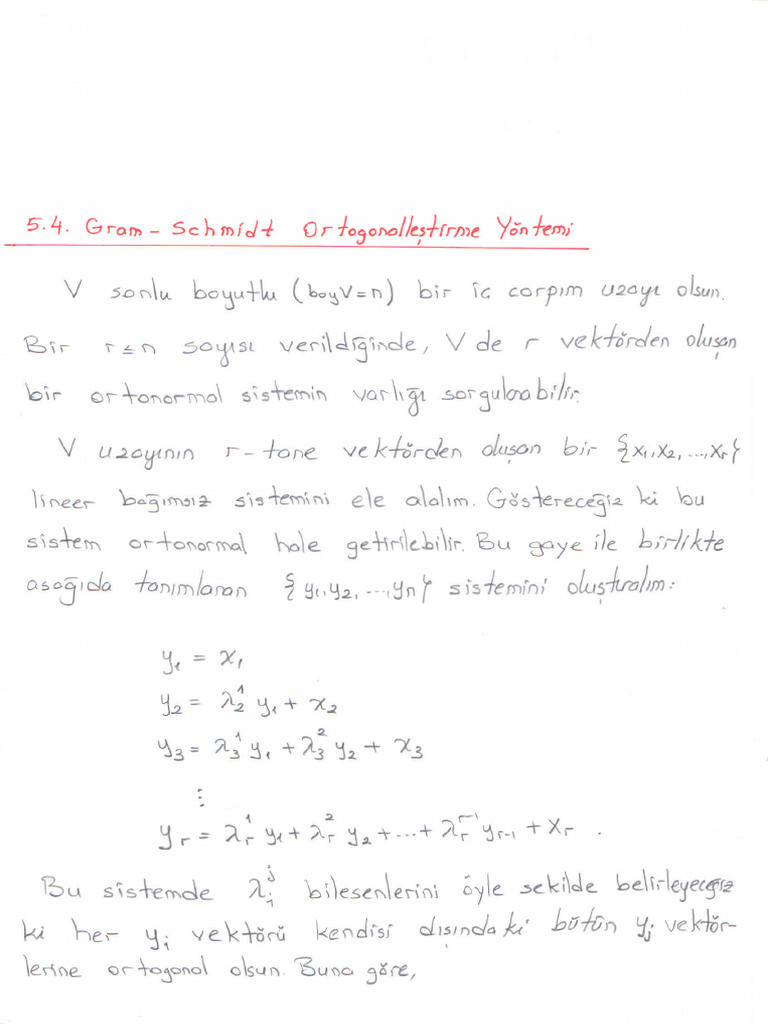 5.4. Gram - Schmidt Ortogonalleştirme Yöntemi
V sonlu boyutlu (boyV=n) bir iç çarpım uzayı olsun.
Bir r≤n sayısı verildiğinde, V de r vektörden oluşan
bir ortonormal sistemin varlığı sorgulanabilir.
V uzayının r-tane vektörden oluşan bir {x₁,x₂,...,xᵣ}
lineer bağımsız sistemini ele alalım. Göstereceğiz ki bu
sistem ortonormal hale getirilebilir. Bu gaye ile birlikte
aşağıda tanımlanan {y₁,y₂,...,yₙ} sistemini oluşturalım:
y₁ = x₁
y₂ = λ₂¹ y₁ + x₂
y₃ = λ₃¹ y₁ + λ₃² y₂ + x₃
⋮
yᵣ = λᵣ¹ y₁ + λᵣ² y₂ + ... + λᵣʳ⁻¹ yᵣ₋₁ + xᵣ .
Bu sistemde λᵢʲ bileşenlerini öyle şekilde belirleyeceğiz
ki her yᵢ vektörü kendisi dışındaki bütün yⱼ vektör-
lerine ortogonal olsun. Buna göre,